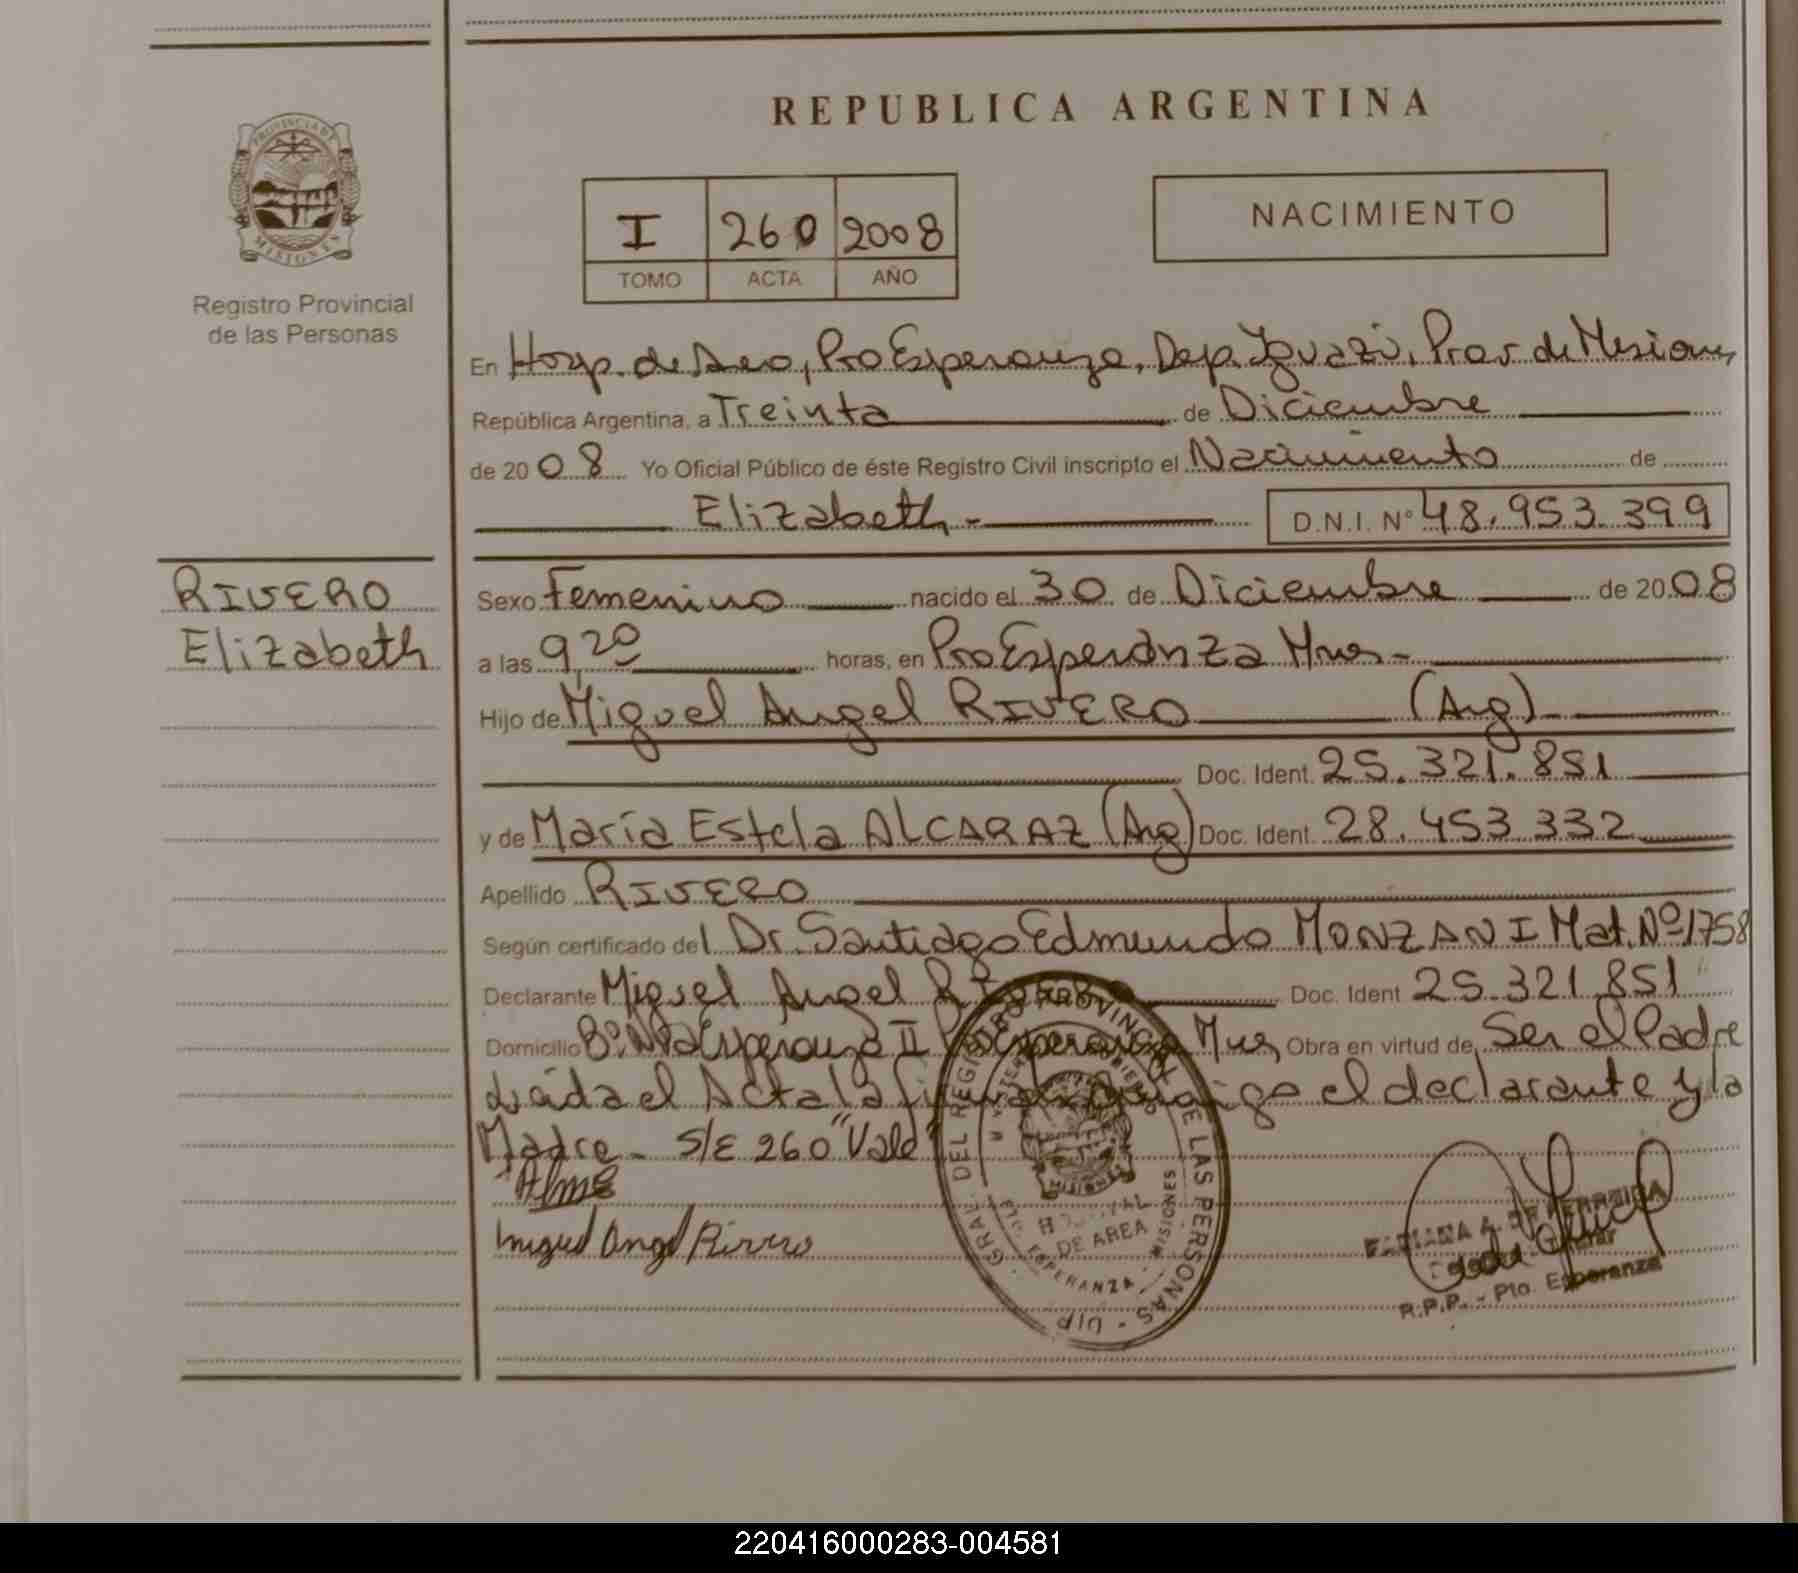 REPUBLICA ARGENTINA
PROVINCIA DE
MISIONES
Registro Provincial
de las Personas
I 260 2008
TOMO ACTA AÑO
NACIMIENTO
En Hosp. de Area, Pto Esperanza, Dep. Iguazú, Prov. de Misiones,
República Argentina, a Treinta de Diciembre
de 2008 Yo Oficial Público de éste Registro Civil inscripto el Nacimiento de
Elizabeth - D.N.I. Nº 48.953.399
RIVERO
Elizabeth
Sexo Femenino nacido el 30 de Diciembre de 2008
a las 9,20 horas, en Pto Esperanza Mnes -
Hijo de Miguel Angel RIVERO (Arg)
Doc. Ident. 25.321.851
y de María Estela ALCARAZ (Arg) Doc. Ident. 28.453.332
Apellido RIVERO
Según certificado del Dr. Santiago Edmundo MONZANI Mat. Nº 1758
Declarante Miguel Angel RIVERO Doc. Ident 25.321.851
Domicilio Bº Esperanza II Pto Esperanza Mnes, Obra en virtud de Ser el Padre
Leída el Acta la firman conmigo el declarante y la
Madre - S/E 260 "Vale"
Miguel Angel Rivero
GRAL. DEL REGISTRO PROVINCIAL DE LAS PERSONAS
HOSPITAL
DE AREA
ESPERANZA - MISIONES
R.P.P. - Pto. Esperanza
220416000283-004581